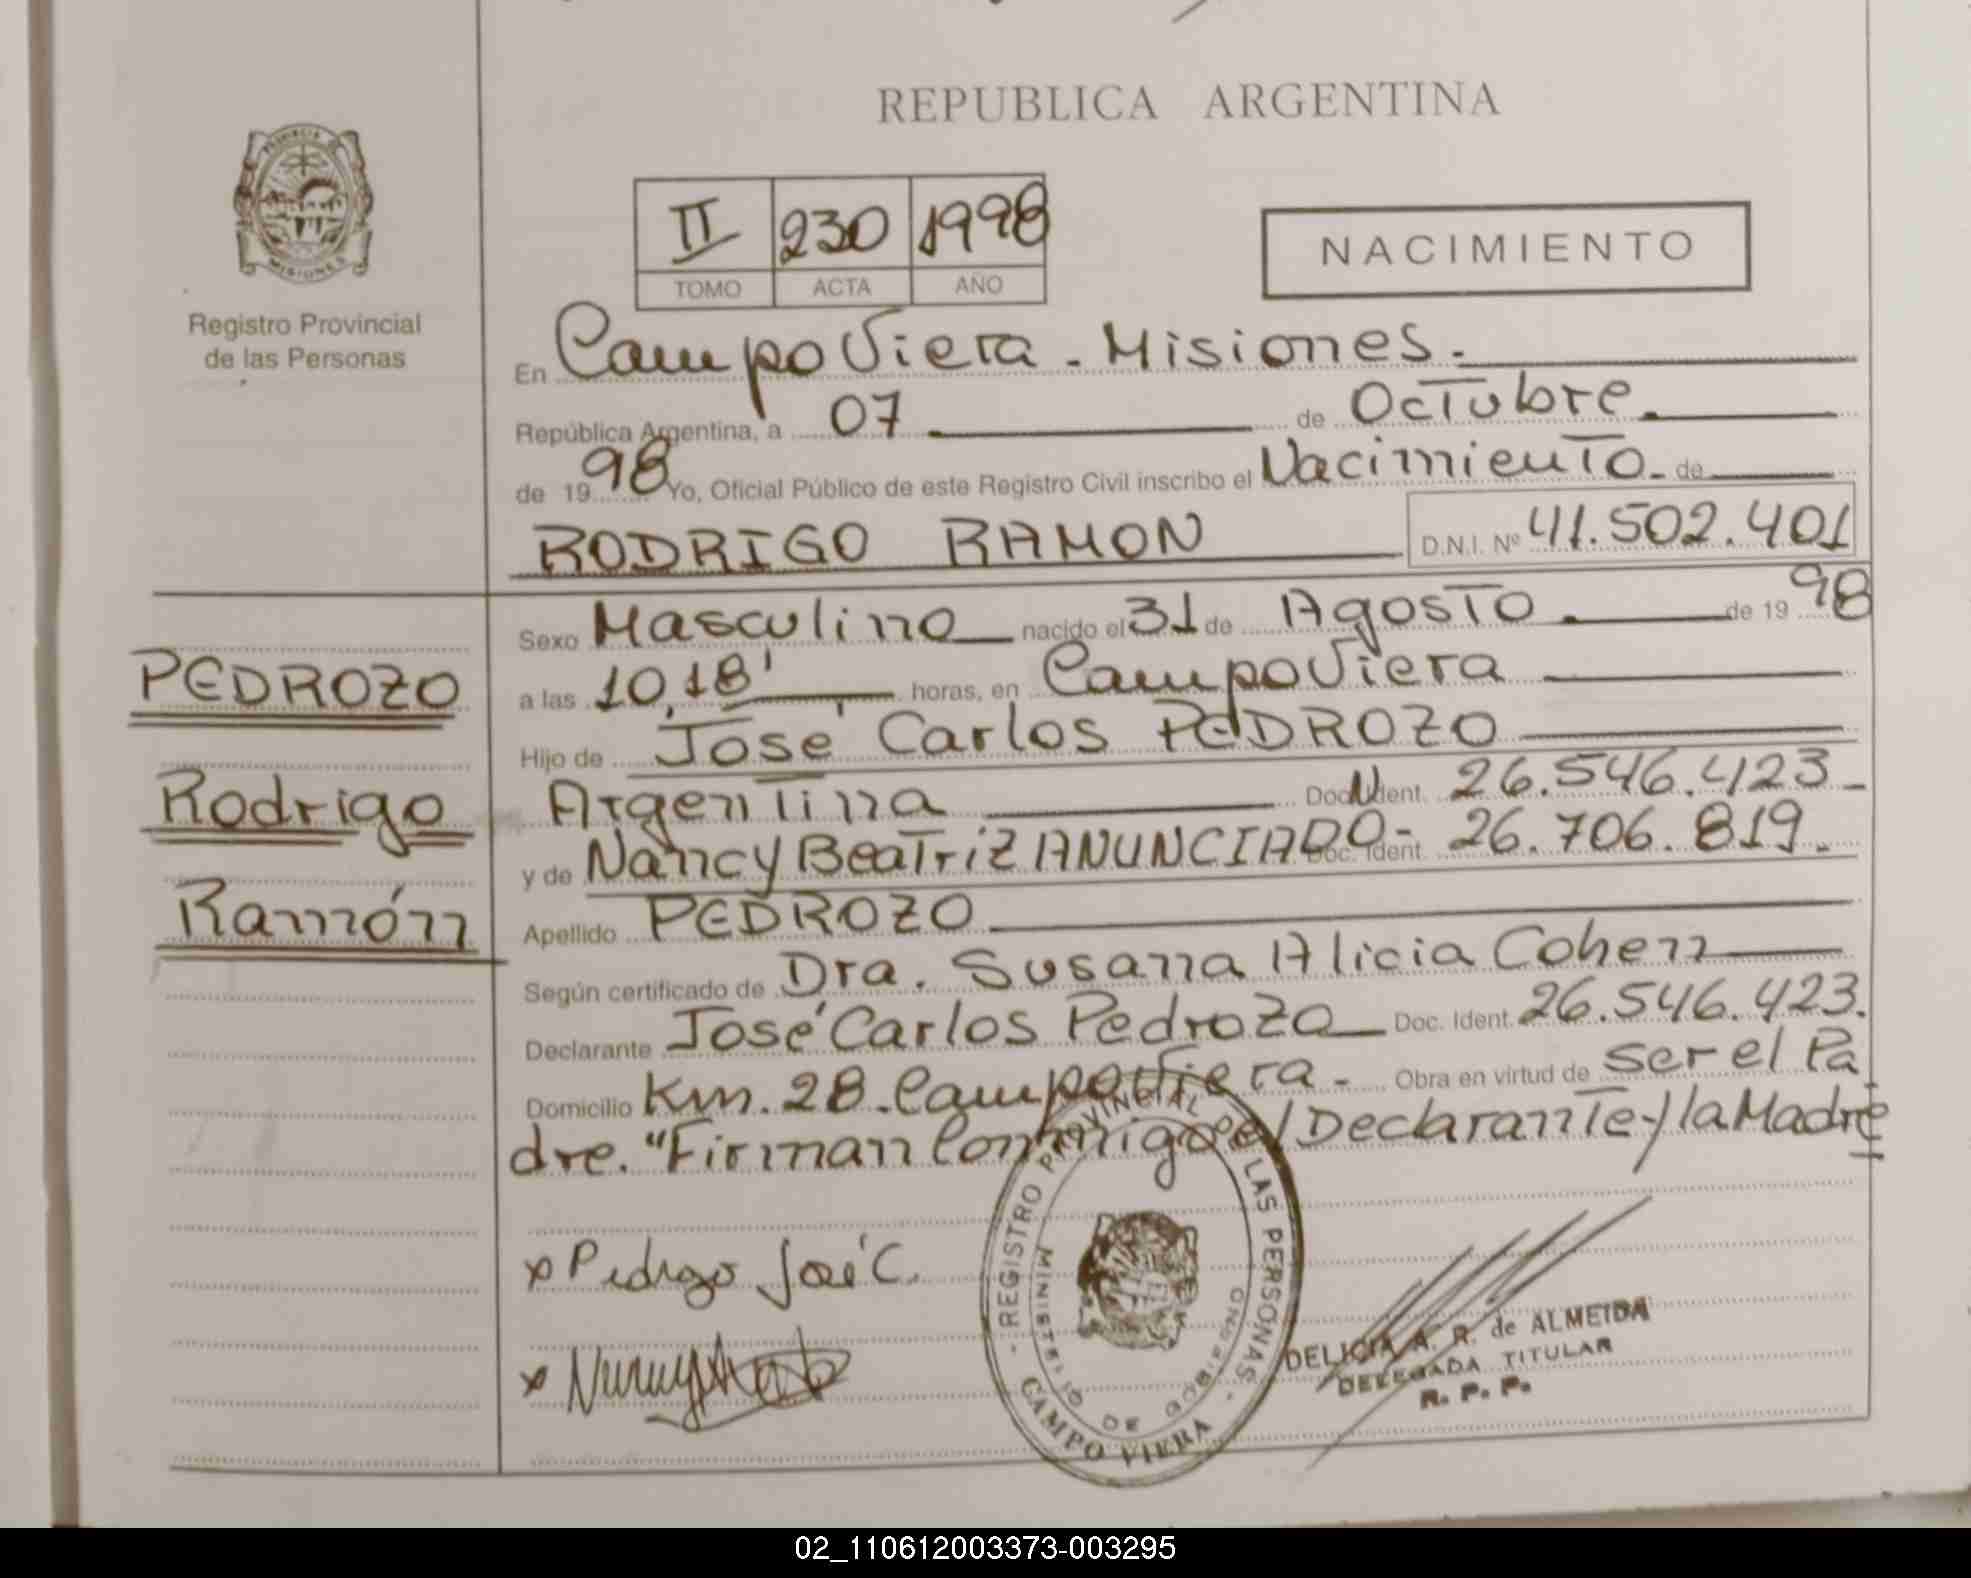 REPUBLICA ARGENTINA
PROVINCIA DE
MISIONES
Registro Provincial
de las Personas
II 230 1998
TOMO ACTA AÑO
NACIMIENTO
En Campo Viera - Misiones.
República Argentina, a 07 de Octubre.
de 1998 Yo, Oficial Público de este Registro Civil inscribo el Nacimiento - de
RODRIGO RAMON D.N.I. Nº 41.502.401
PEDROZO
Rodrigo
Ramón
Sexo Masculino nacido el 31 de Agosto. de 1998
a las 10,18' horas, en Campo Viera
Hijo de José Carlos PEDROZO
Argentina Doc. Ident. N 26.546.423 -
y de Nancy Beatriz ANUNCIADO - Doc. Ident. 26.706.819.
Apellido PEDROZO
Según certificado de Dra. Susana Alicia Cohen
Declarante José Carlos Pedrozo Doc. Ident. 26.546.423.
Domicilio Km. 28. Campo Viera - Obra en virtud de ser el Pa
dre. "Firman Conmigo el Declarante y la Madre
x Pedrozo José C.
x Nancy
REGISTRO PROVINCIAL DE LAS PERSONAS
MINISTERIO DE GOBIERNO
CAMPO VIERA
DELICIA A. R. de ALMEIDA
DELEGADA TITULAR
R. P. P.
02_110612003373-003295